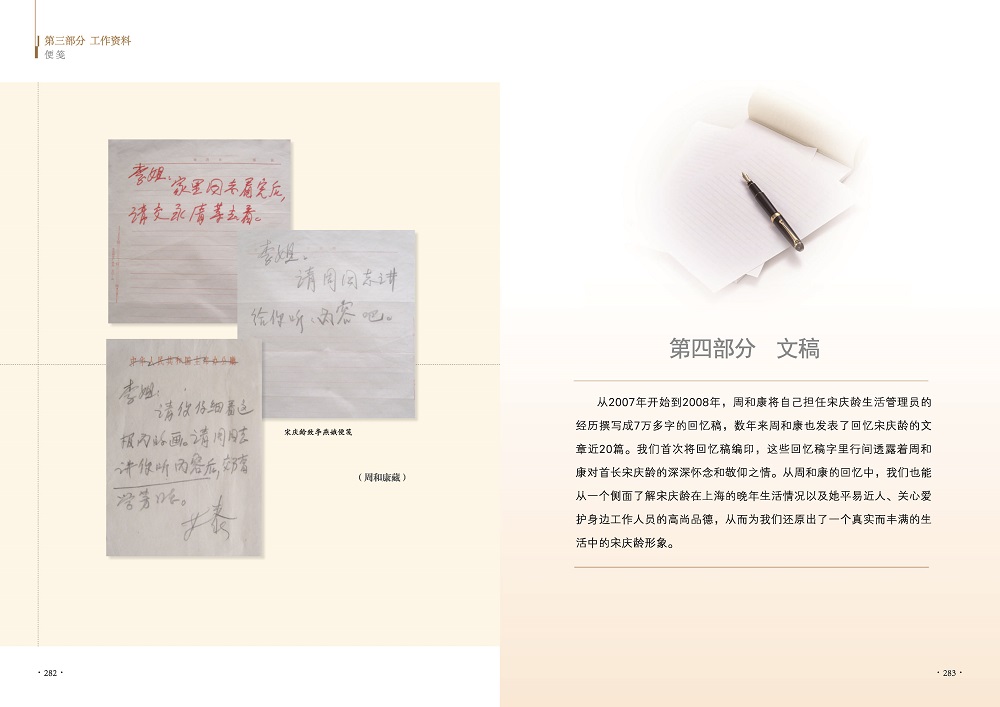 第三部分 工作资料
便笺
李姐：
家里同来看完后，
请交永清等去看。
李姐：
请周同志讲
给你听，内容吧。
李姐：
请你仔细看这
请周同志
讲你听内容后，
宋庆龄致李燕娥便笺
（周和康藏）
·282·
第四部分 文稿
从2007年开始到2008年，周和康将自己担任宋庆龄生活管理员的
经历撰写成7万多字的回忆稿，数年来周和康也发表了回忆宋庆龄的文
章近20篇。我们首次将回忆稿编印，这些回忆稿字里行间透露着周和
康对首长宋庆龄的深深怀念和敬仰之情。从周和康的回忆中，我们也能
从一个侧面了解宋庆龄在上海的晚年生活情况以及她平易近人、关心爱
护身边工作人员的高尚品德，从而为我们还原出了一个真实而丰满的生
活中的宋庆龄形象。
·283·